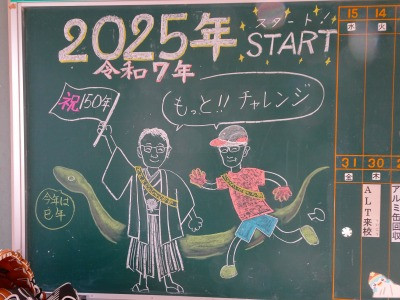 2025年
スタート!
START
令和7年
祝150年
もっと!! チャレンジ
今年は
巳年
15 14
水 火
31 30
金 木
ALT来校
アルミ缶回収